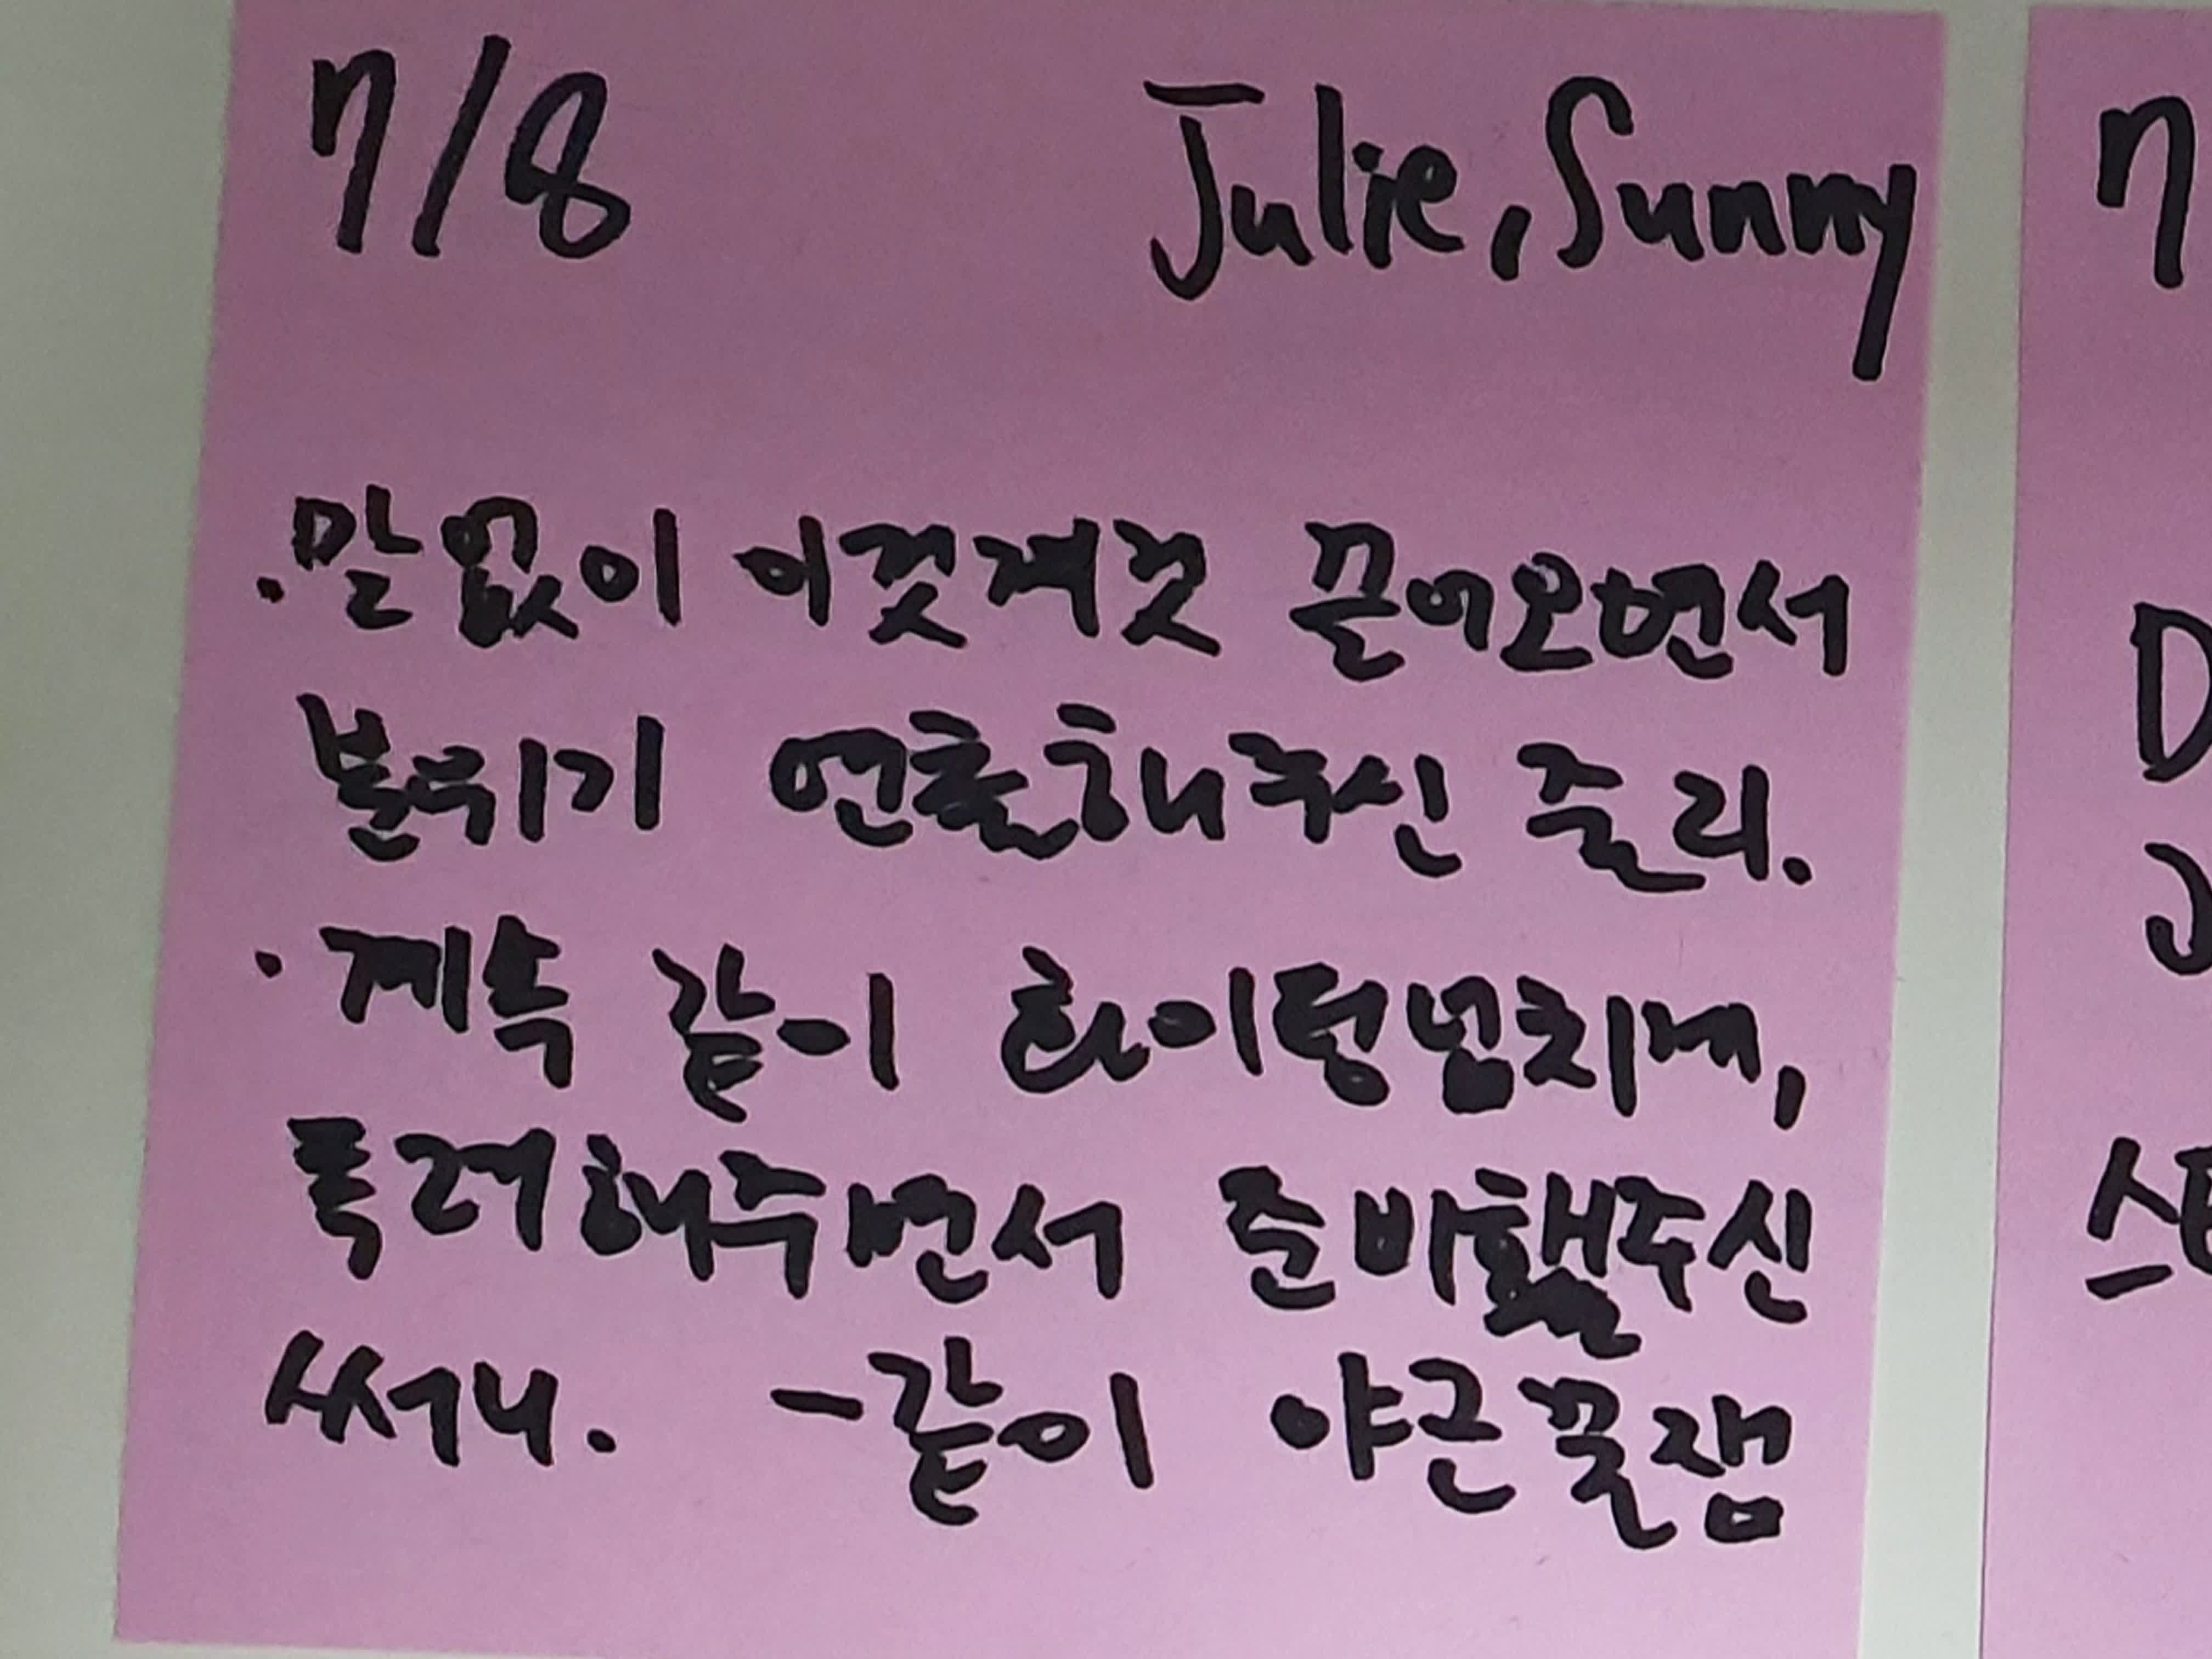 7/8 Julie, Sunny
·말없이 이것저것 끌어오면서
분위기 연출해주신 줄리.
·계속 같이 화이팅넘치게,
독려해주면서 준비해주신
써니. -같이 야근꿀잼